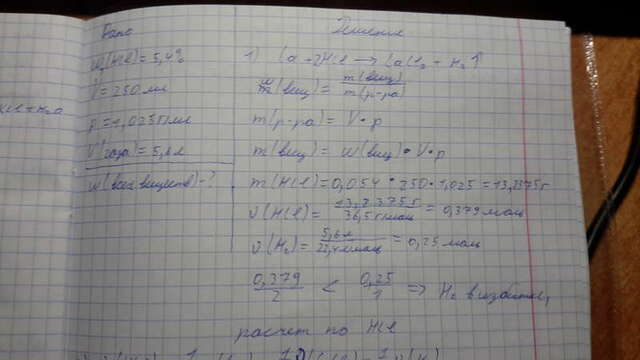 Дано
Решение
W(HCl) = 5,4%
V = 250 мл
ρ = 1,025 г/мл
V(газа) = 5,6 л
W(всех веществ) - ?
1) Ca + 2HCl → CaCl₂ + H₂↑
w(вещ) = m(вещ) / m(р-ра)
m(р-ра) = V · ρ
m(вещ) = w(вещ) · V · ρ
m(HCl) = 0,054 · 250 · 1,025 = 13,8375 г
ν(HCl) = 13,8375 г / 36,5 г/моль = 0,379 моль
ν(H₂) = 5,6 л / 22,4 л/моль = 0,25 моль
0,379 / 2 < 0,25 / 1 ⇒ H₂ в избытке,
расчет по HCl